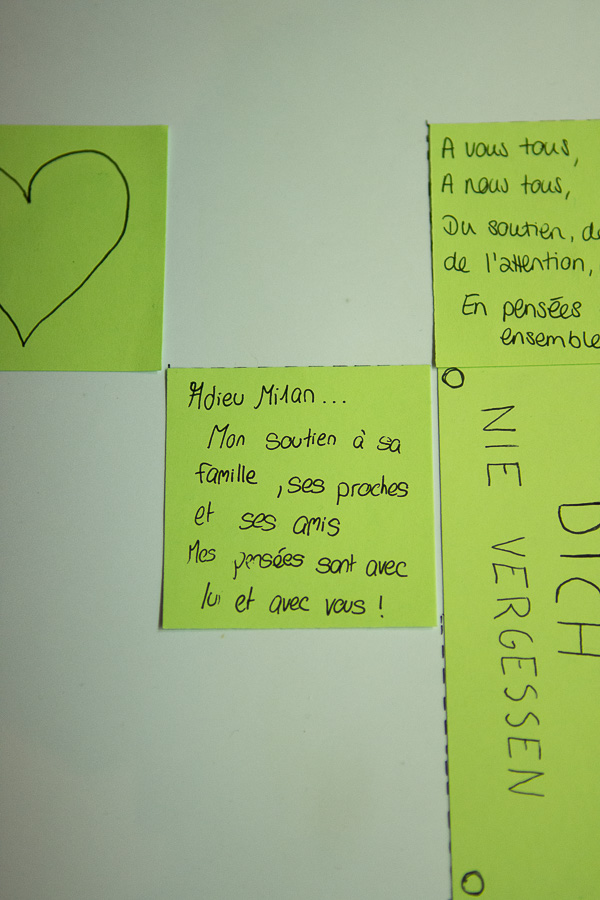 A vous tous,
A nous tous,
Du soutien, de
de l'attention,
En pensées
ensemble
Adieu Milan...
Mon soutien à sa
famille, ses proches
et ses amis
Mes pensées sont avec
lui et avec vous !
NIE VERGESSEN
DICH